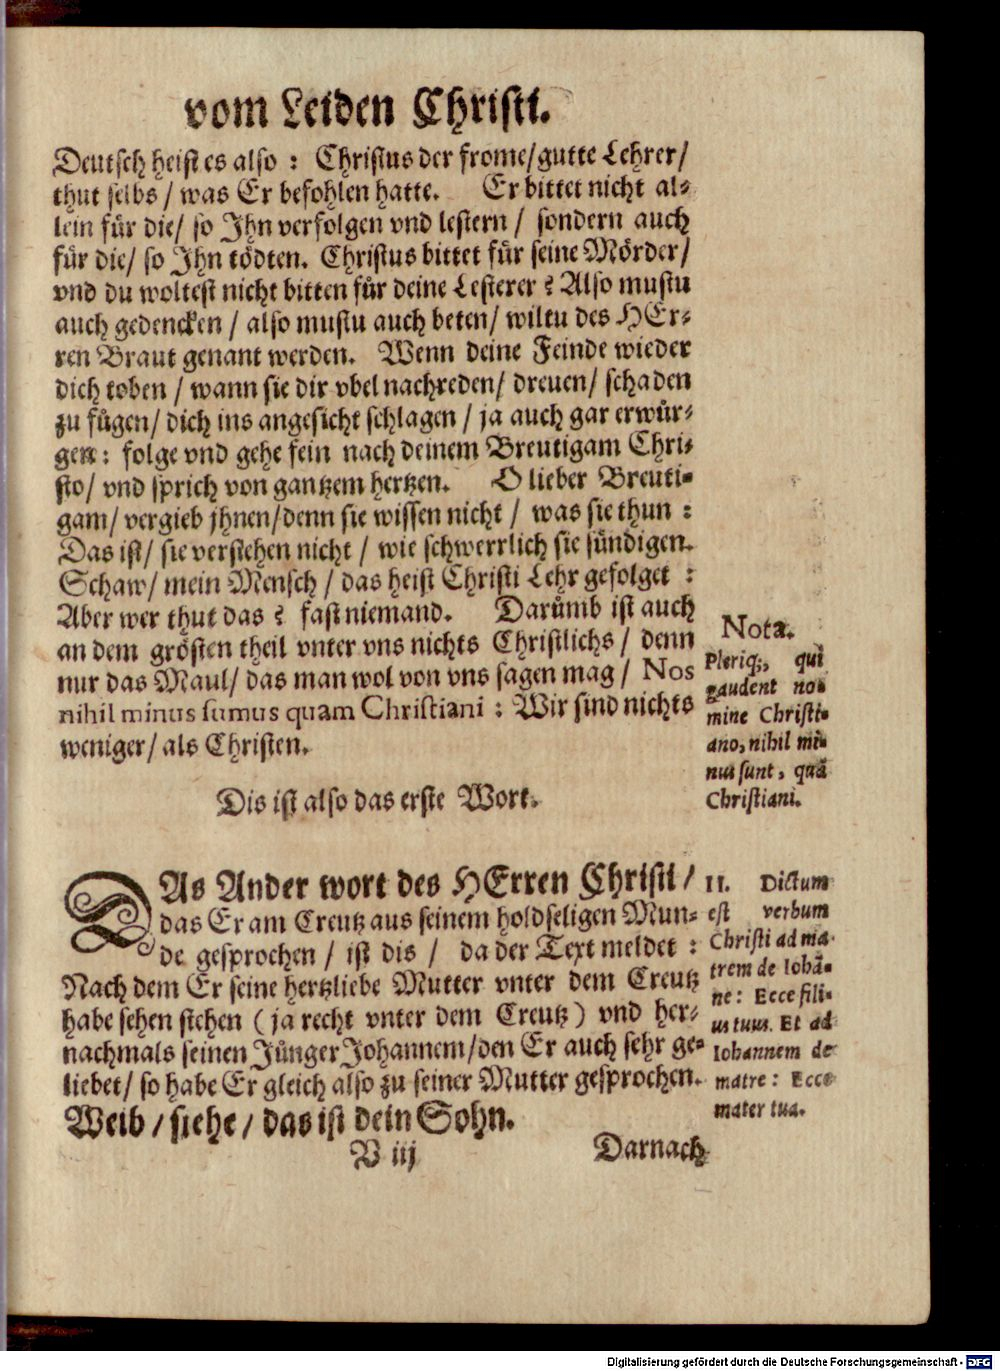 vom Leiden Christi.
Deutsch heist es also : Christus der frome/gutte Lehrer/
thut selbs / was Er befohlen hatte. Er bittet nicht al-
lein für die/ so Ihn verfolgen vnd lestern / sondern auch
für die/ so Ihn tödten. Christus bittet für seine Mörder/
vnd du woltest nicht bitten für deine Lesterer? Also mustu
auch gedencken / also mustu auch beten/ wiltu des HEr-
ren Braut genant werden. Wenn deine Feinde wieder
dich toben / wann sie dir vbel nachreden/ dreuen/ schaden
zu fügen/ dich ins angesicht schlagen / ja auch gar erwür-
gen: folge vnd gehe fein nach deinem Breutigam Chri-
sto/ vnd sprich von gantzem hertzen. O lieber Breuti-
gam/ vergieb jhnen/denn sie wissen nicht / was sie thun :
Das ist/ sie verstehen nicht / wie schwerrlich sie sündigen.
Schaw/ mein Mensch / das heist Christi Lehr gefolget :
Aber wer thut das? fast niemand. Darümb ist auch
an dem grösten theil vnter vns nichts Christlichs / denn
nur das Maul/ das man wol von vns sagen mag / Nos
nihil minus sumus quam Christiani : Wir sind nichts
weniger/ als Christen.
Nota.
Pleriq;, qui
gaudent no-
mine Christi-
ano, nihil mi-
nus sunt, quā
Christiani.
Dis ist also das erste Wort.
DAs Ander wort des HErren Christi /
das Er am Creutz aus seinem holdseligen Mun-
de gesprochen / ist dis / da der Text meldet :
Nach dem Er seine hertzliebe Mutter vnter dem Creutz
habe sehen stehen ( ja recht vnter dem Creutz ) vnd her-
nachmals seinen Jünger Johannem/den Er auch sehr ge-
liebet/ so habe Er gleich also zu seiner Mutter gesprochen.
Weib / siehe / das ist dein Sohn.
II. Dictum
est verbum
Christi ad ma-
trem de Iohā-
ne: Ecce fili-
us tuus. Et ad
Iohannem de
matre: Ecce
mater tua.
V iij
Darnach
Digitalisierung gefördert durch die Deutsche Forschungsgemeinschaft - DFG